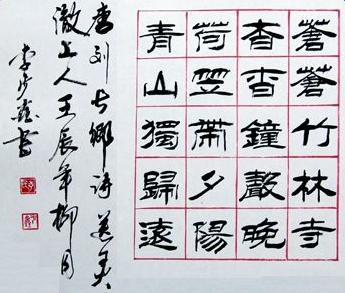 蒼蒼竹林寺
杳杳鐘聲晚
荷笠帶夕陽
青山獨歸遠
唐刘长卿诗送灵
澈上人壬辰年柳月
李书